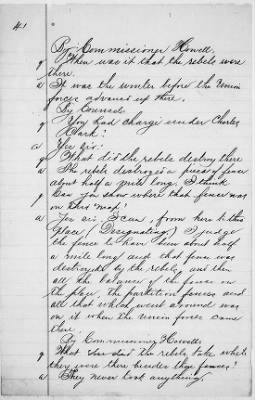 41
By Commissioner Howell.
q When was it that the rebels were
there.
a It was the winter before the Union
forces advanced up there.
By Counsel
q You had charge under Charles
Clark?
a Yes sir.
q What did the rebels destroy there
a The rebels destroyed a piece of fence
about half a mile long. I think
q Can you show where that fence was
on this map?
a Yes sir. I can, from here to this
place (Designating) I judge
the fence to have been about half
a mile long and that fence was
destroyed by the rebels, and then
all the balance of the fence on
the place, the partition fences and
all that which went around was
on it when the Union forces came
there.
By Commissioner Howell.
q What else did the rebels take while
they were there besides these fences?
a They never took anything.